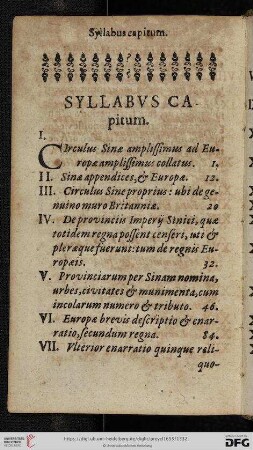 Syllabus capitum.
SYLLABVS CA-
pitum.
I.
CIrculus Sinæ amplissimus ad Eu-
ropæ amplissimum collatus. 1.
II. Sinæ appendices, & Europæ. 12.
III. Circulus Sine proprius: ubi de ge-
nuino muro Britanniæ. 20
IV. De provinciis Imperij Sinici, quæ
totidem regna possent censeri, uti &
pleræque fuerunt: tum de regnis Eu-
ropæis. 32.
V. Provinciarum per Sinam nomina,
urbes, civitates & munimenta, cum
incolarum numero & tributo. 46.
VI. Europæ brevis descriptio & enar-
ratio, secundum regna. 84.
VII. Vlterior enarratio quinque reli-
quo-
DFG